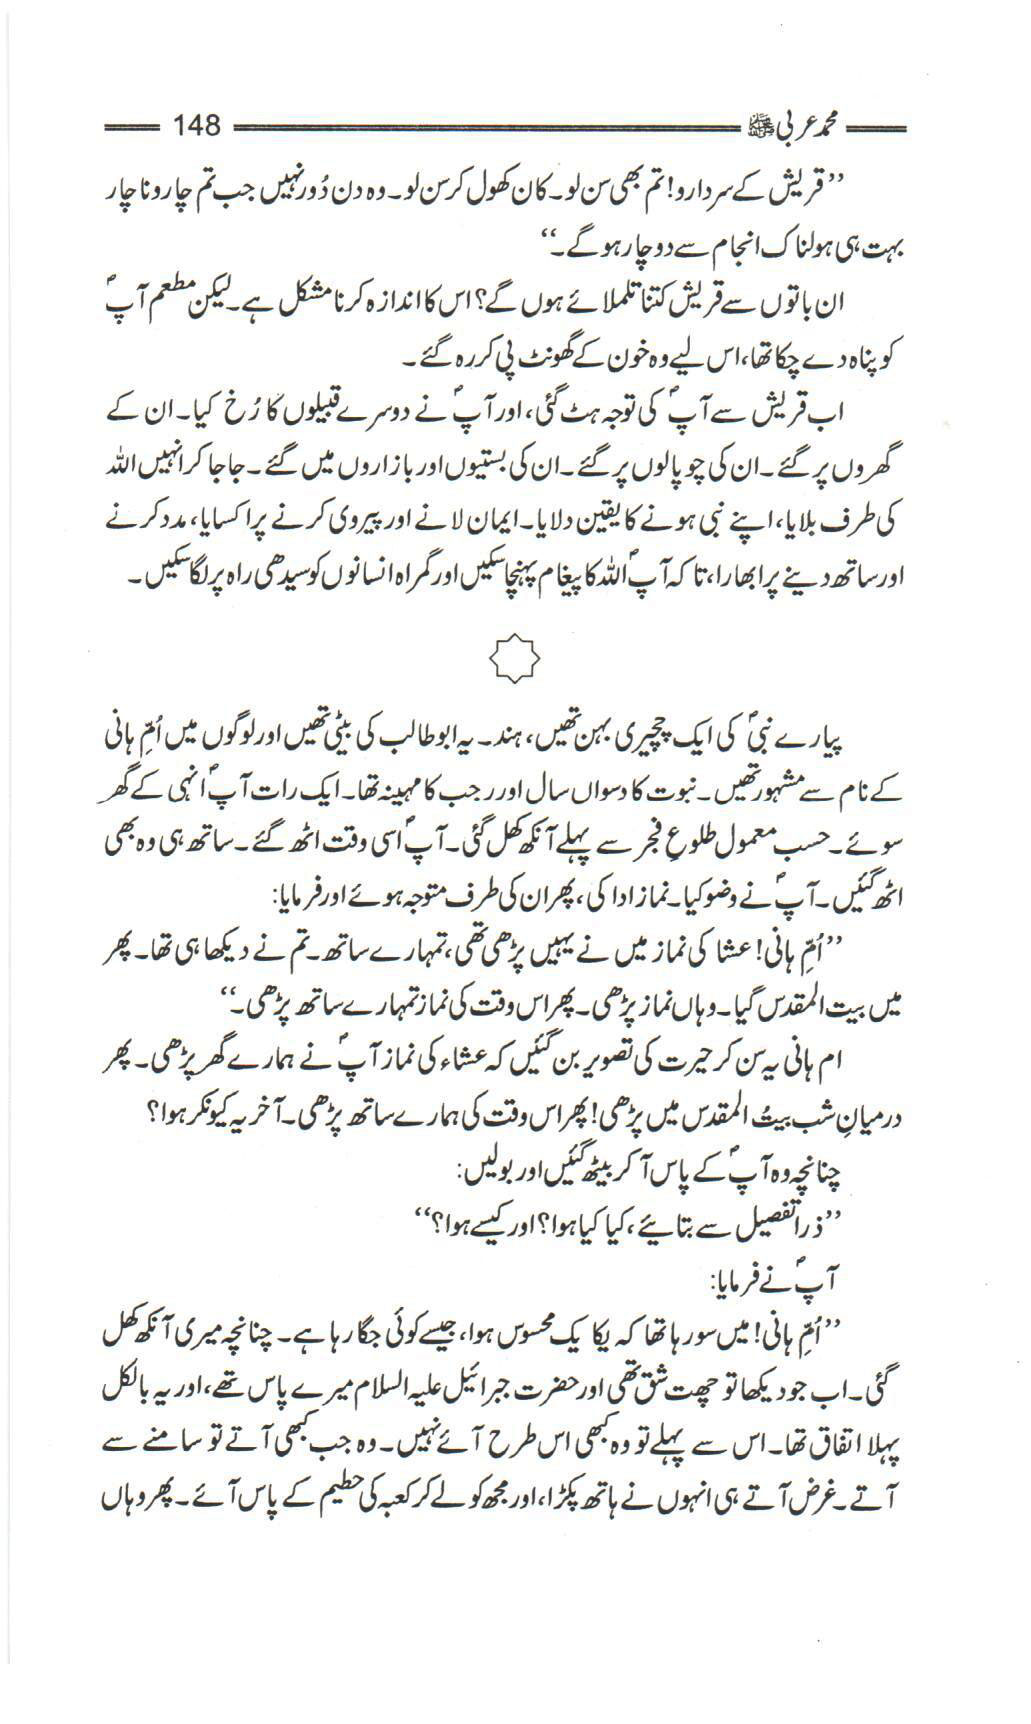 محمد عربی ﷺ 148
’’قریش کے سردارو! تم بھی سن لو۔ کان کھول کر سن لو۔ وہ دن دُور نہیں جب تم چار و ناچار
بہت ہی ہولناک انجام سے دوچار ہو گے۔‘‘
ان باتوں سے قریش کتنا تلملائے ہوں گے؟ اس کا اندازہ کرنا مشکل ہے۔ لیکن مطعم آپؐ
کو پناہ دے چکا تھا، اس لیے وہ خون کے گھونٹ پی کر رہ گئے۔
اب قریش سے آپؐ کی توجہ ہٹ گئی، اور آپؐ نے دوسرے قبیلوں کا رُخ کیا۔ ان کے
گھروں پر گئے۔ ان کی چوپالوں پر گئے۔ ان کی بستیوں اور بازاروں میں گئے۔ جا جا کر انہیں اللہ
کی طرف بلایا، اپنے نبی ہونے کا یقین دلایا۔ ایمان لانے اور پیروی کرنے پر اکسایا، مدد کرنے
اور ساتھ دینے پر ابھارا، تاکہ آپؐ اللہ کا پیغام پہنچا سکیں اور گمراہ انسانوں کو سیدھی راہ پر لگا سکیں۔
پیارے نبیؐ کی ایک چچیری بہن تھیں، ہند۔ یہ ابوطالب کی بیٹی تھیں اور لوگوں میں اُمِّ ہانی
کے نام سے مشہور تھیں۔ نبوت کا دسواں سال اور رجب کا مہینہ تھا۔ ایک رات آپؐ انہی کے گھر
سوئے۔ حسب معمول طلوعِ فجر سے پہلے آنکھ کھل گئی۔ آپؐ اسی وقت اٹھ گئے۔ ساتھ ہی وہ بھی
اٹھ گئیں۔ آپؐ نے وضو کیا۔ نماز ادا کی، پھر ان کی طرف متوجہ ہوئے اور فرمایا:
’’اُمِّ ہانی! عشا کی نماز میں نے یہیں پڑھی تھی، تمہارے ساتھ۔ تم نے دیکھا ہی تھا۔ پھر
میں بیت المقدس گیا۔ وہاں نماز پڑھی۔ پھر اس وقت کی نماز تمہارے ساتھ پڑھی۔‘‘
ام ہانی یہ سن کر حیرت کی تصویر بن گئیں کہ عشاء کی نماز آپؐ نے ہمارے گھر پڑھی۔ پھر
درمیانِ شب بیتُ المقدس میں پڑھی! پھر اس وقت کی ہمارے ساتھ پڑھی۔ آخر یہ کیونکر ہوا؟
چنانچہ وہ آپؐ کے پاس آ کر بیٹھ گئیں اور بولیں:
’’ذرا تفصیل سے بتایئے، کیا کیا ہوا؟ اور کیسے ہوا؟‘‘
آپؐ نے فرمایا:
’’اُمِّ ہانی! میں سو رہا تھا کہ یکایک محسوس ہوا، جیسے کوئی جگا رہا ہے۔ چنانچہ میری آنکھ کھل
گئی۔ اب جو دیکھا تو چھت شق تھی اور حضرت جبرائیل علیہ السلام میرے پاس تھے، اور یہ بالکل
پہلا اتفاق تھا۔ اس سے پہلے تو وہ کبھی اس طرح آئے نہیں۔ وہ جب کبھی آتے تو سامنے سے
آتے۔ غرض آتے ہی انہوں نے ہاتھ پکڑا، اور مجھ کو لے کر کعبہ کی حطیم کے پاس آئے۔ پھر وہاں